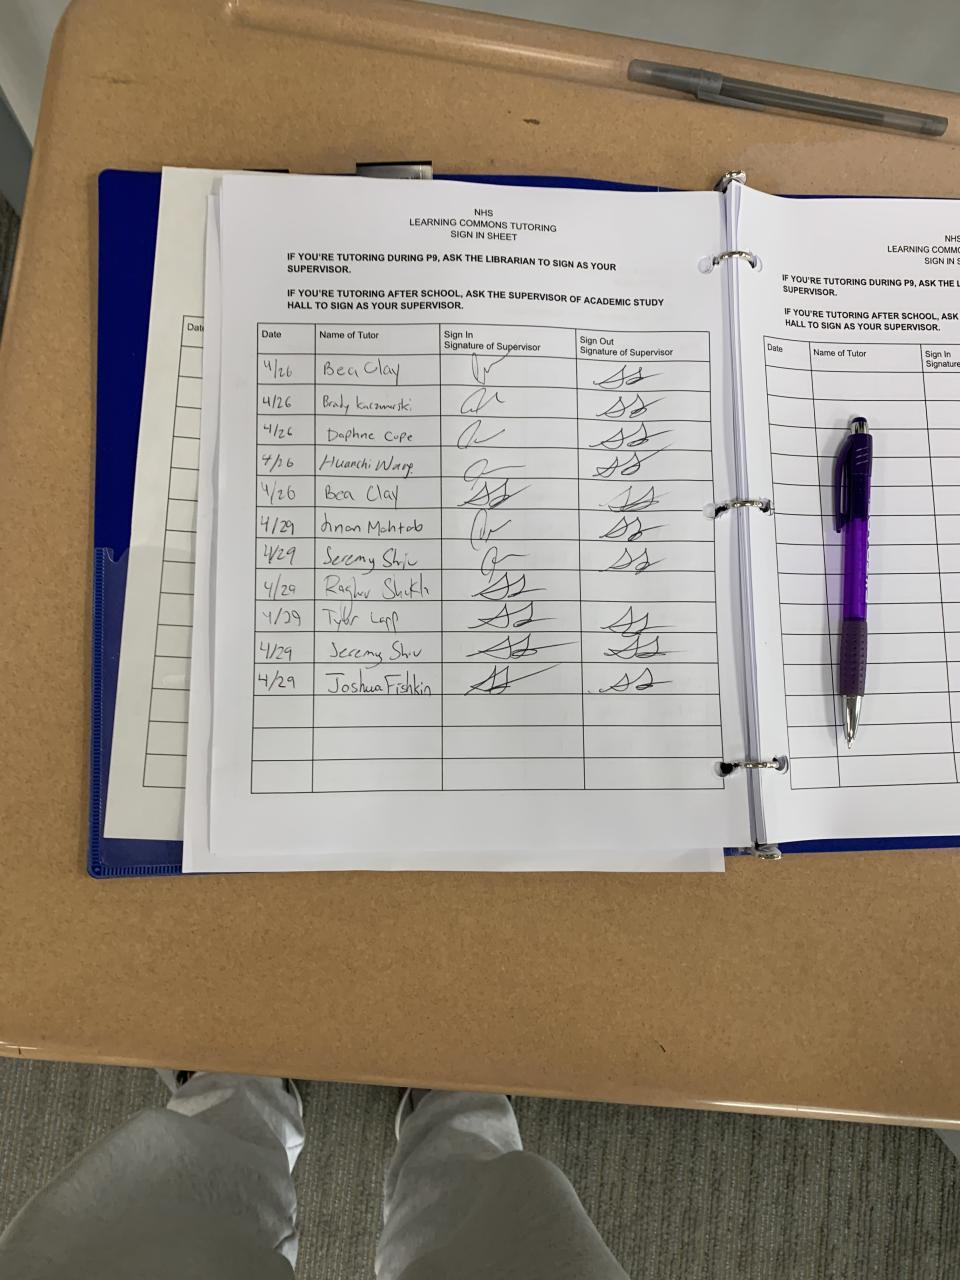 NHS
LEARNING COMMONS TUTORING
SIGN IN SHEET
IF YOU'RE TUTORING DURING P9, ASK THE LIBRARIAN TO SIGN AS YOUR
SUPERVISOR.
IF YOU'RE TUTORING AFTER SCHOOL, ASK THE SUPERVISOR OF ACADEMIC STUDY
HALL TO SIGN AS YOUR SUPERVISOR.
Date Name of Tutor Sign In Signature of Supervisor Sign Out Signature of Supervisor
4/26 Bea Clay
4/26 Brady
4/26 Daphne Cope
4/26 Huanchi Wang
4/26 Bea Clay
4/29 Mahtab
4/29 Jeremy Shiv
4/29 Raghav
4/29 Tyler Lapp
4/29 Jeremy Shiv
4/29 Joshua Fishkin
Dat
NHS
LEARNING COMMO
SIGN IN S
IF YOU'RE TUTORING DURING P9, ASK THE L
SUPERVISOR.
IF YOU'RE TUTORING AFTER SCHOOL, ASK
HALL TO SIGN AS YOUR SUPERVISOR.
Date Name of Tutor Sign In Signature